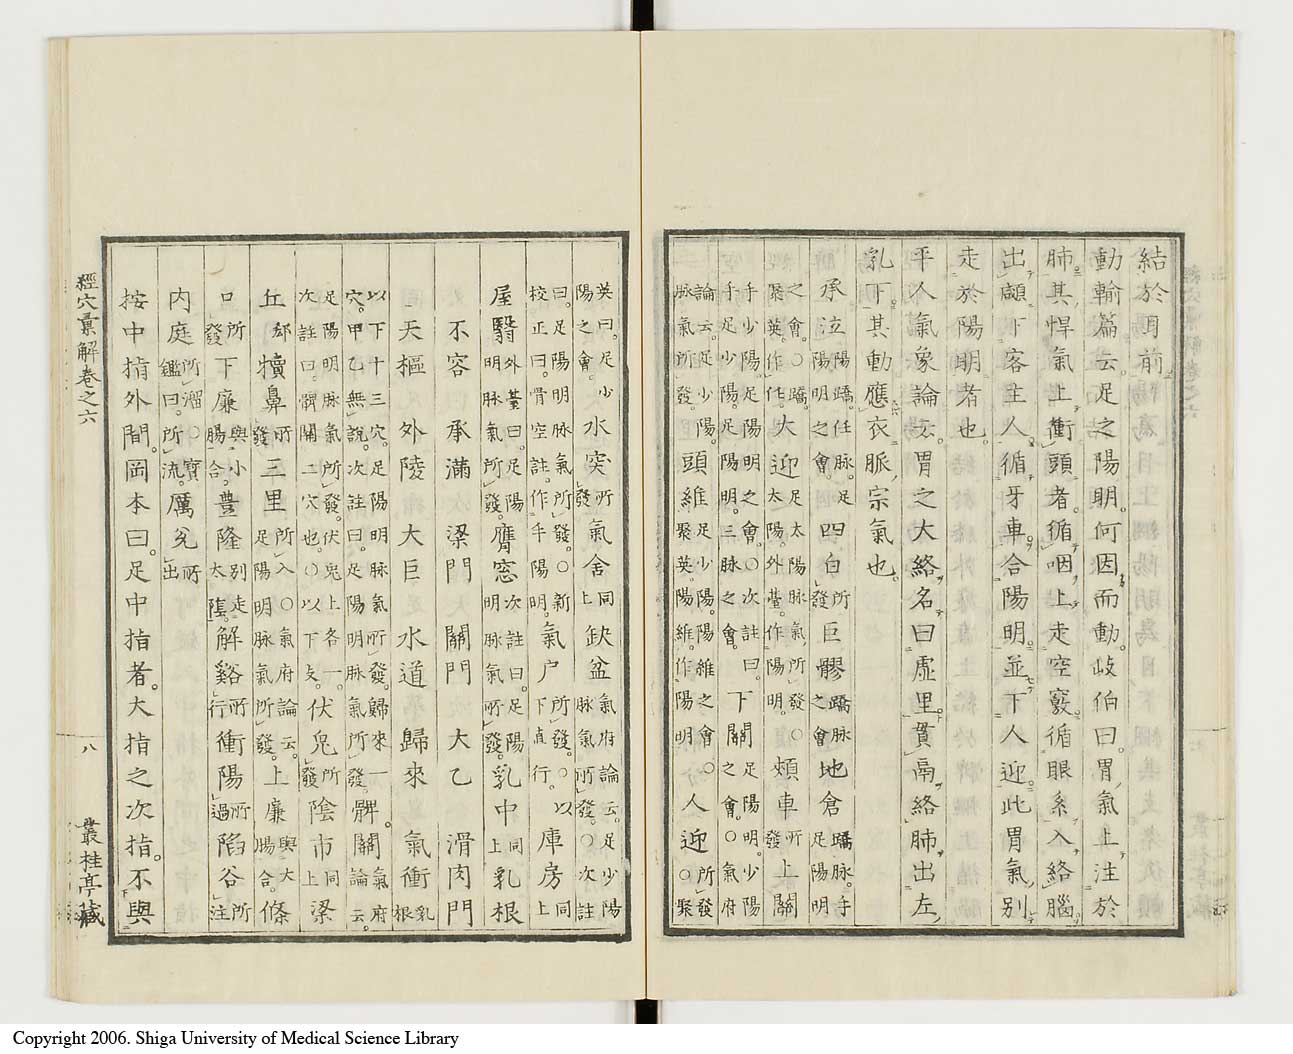 結於耳前
動輸篇云。足之陽明。何因而動。岐伯曰。胃氣上注於
肺。其悍氣上衝頭者。循咽上走空竅。循眼系入絡腦。
出顑下客主人。循牙車。合陽明。並下人迎。此胃氣別
走於陽明者也。
平人氣象論云。胃之大絡名曰虛里。貫鬲絡肺出左
乳下。其動應衣脈宗氣也。
承泣陽蹻任脈。足陽明之會。四白所發巨髎蹻脈之會地倉蹻脈。手足陽明
之會。○蹻。聚英作作。大迎足太陽脈氣所發○太陽。外臺作陽明。頰車所發上關
手少陽足陽明之會。○次註曰。手足少陽。足陽明。三脈之會。下關足陽明。少陽之會。○氣府
論云。足少陽。脈氣所發。頭維足少陽。陽維之會。○聚英。陽維。作陽明人迎所發○聚
英曰。足少陽之會。水突所發氣舍同上缺盆氣府論云。足少陽脈氣所發。○次註
曰。足陽明脈氣所發。○新校正曰。骨空註。作手陽明。氣户所發。○以下直行。庫房同上
屋翳外臺曰。足陽明脈氣所發。膺窓次註曰。足陽明脈氣所發。乳中同上乳根
不容 承滿 梁門 關門 大乙 滑肉門
天樞 外陵 大巨 水道 歸來 氣衝乳根
以下十三穴。足陽明脈氣所發。歸來一穴。甲乙無說。次註曰。足陽明脈氣所發。髀關氣府論云。
足陽明脈氣所發。伏兔上各一。次註曰。髀關二穴也。○以下支。伏兔所發陰市同上梁
丘郄犢鼻所發三里所入○氣府論云。足陽明脈氣所發。上廉與大腸合。條
口所發下廉與小腸合。豊隆別走太陰。解谿所行衝陽所過陷谷所注
内庭所溜○寶鑑曰。所流。厲兊所出
按中指外間。岡本曰。足中指者。大指之次指。不與
經穴彙解卷之六
八
叢桂亭藏
Copyright 2006. Shiga University of Medical Science Library